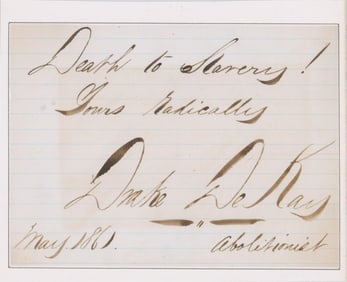 Death to Slavery!
Yours Radically
Drake De Kay
May 1861.
Abolitionist